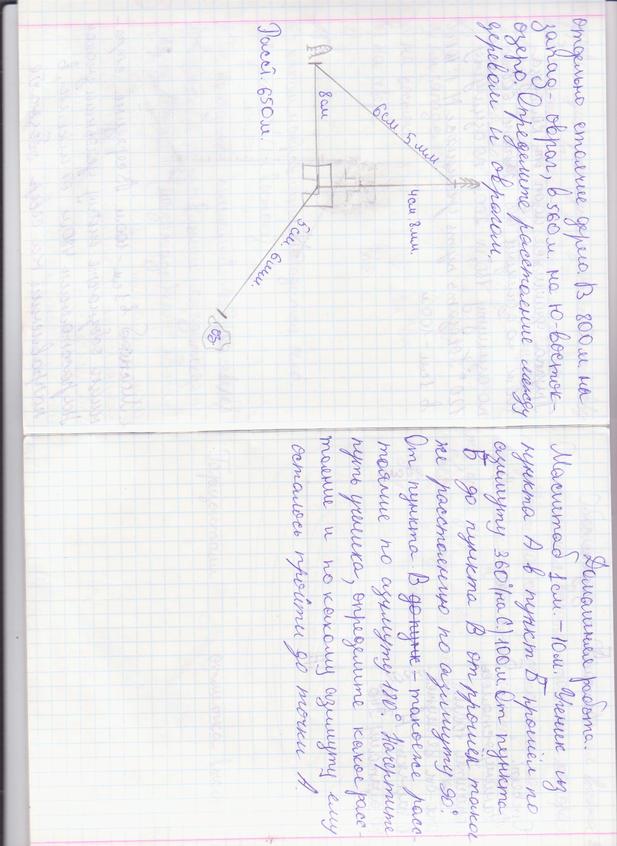 отдельно стоячие дерево. В 800м на
запад - овраг, в 560м. на ю-восток-
озеро. Определите расстояние между
деревом и оврагом.
4см. 8мм.
6см. 5мм
8см
5см. 6мм.
оз.
Расст. 650м.
Домашняя работа.
Масштаб 1см - 10м. Ученик из
пункта А в пункт Б прошёл по
азимуту 360°(на С.) 100м. От пункта
Б до пункта В он прошел тако
же расстоянию по азимуту 90°.
От пункта В до пунк - такое же расс-
тояние по азимуту 180°. Начертите
путь ученика, определите какое расс-
тояние и по какому азимуту ему
осталось пройти до точки А.